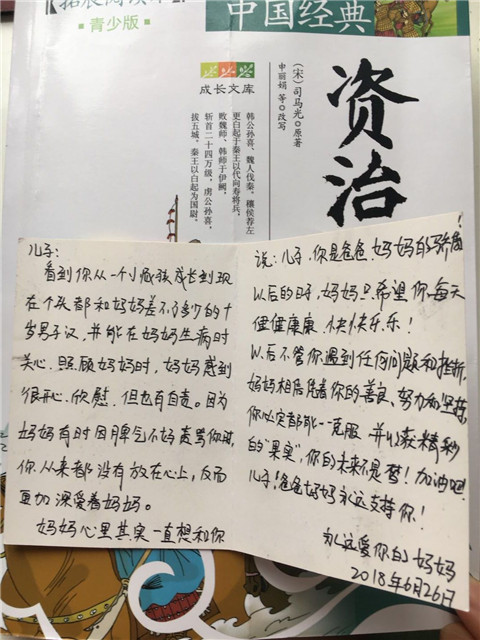 拓展阅读
青少版
中国经典
成长文库
(宋)司马光◎原著
申丽娟 等◎改写
资治
韩公孙喜、魏人伐秦。穰侯荐左
更白起于秦王以代向寿将兵，
败魏师、韩师于伊阙，
斩首二十四万级，虏公孙喜，
拔五城。秦王以白起为国尉。
儿子：
看到你从一个小孩成长到现
在个头都和妈妈差不多的十
岁男子汉，并能在妈妈生病时
关心、照顾妈妈时，妈妈感到
很开心、欣慰，但也有自责。因为
妈妈有时因脾气不好责骂你时
你从来都没有放在心上，反而
更加深爱着妈妈。
妈妈心里其实一直想和你
说：儿子，你是爸爸、妈妈的骄傲
以后的日子，妈妈只希望你每天
健健康康、快快乐乐！
以后不管你遇到任何问题和挫折，
妈妈相信凭着你的善良、努力和坚持，
你必定都能一一克服，并收获精彩
的“果实”，你的未来不是梦！加油吧
儿子！爸爸妈妈永远支持你！
永远爱你的妈妈
2018年6月26日